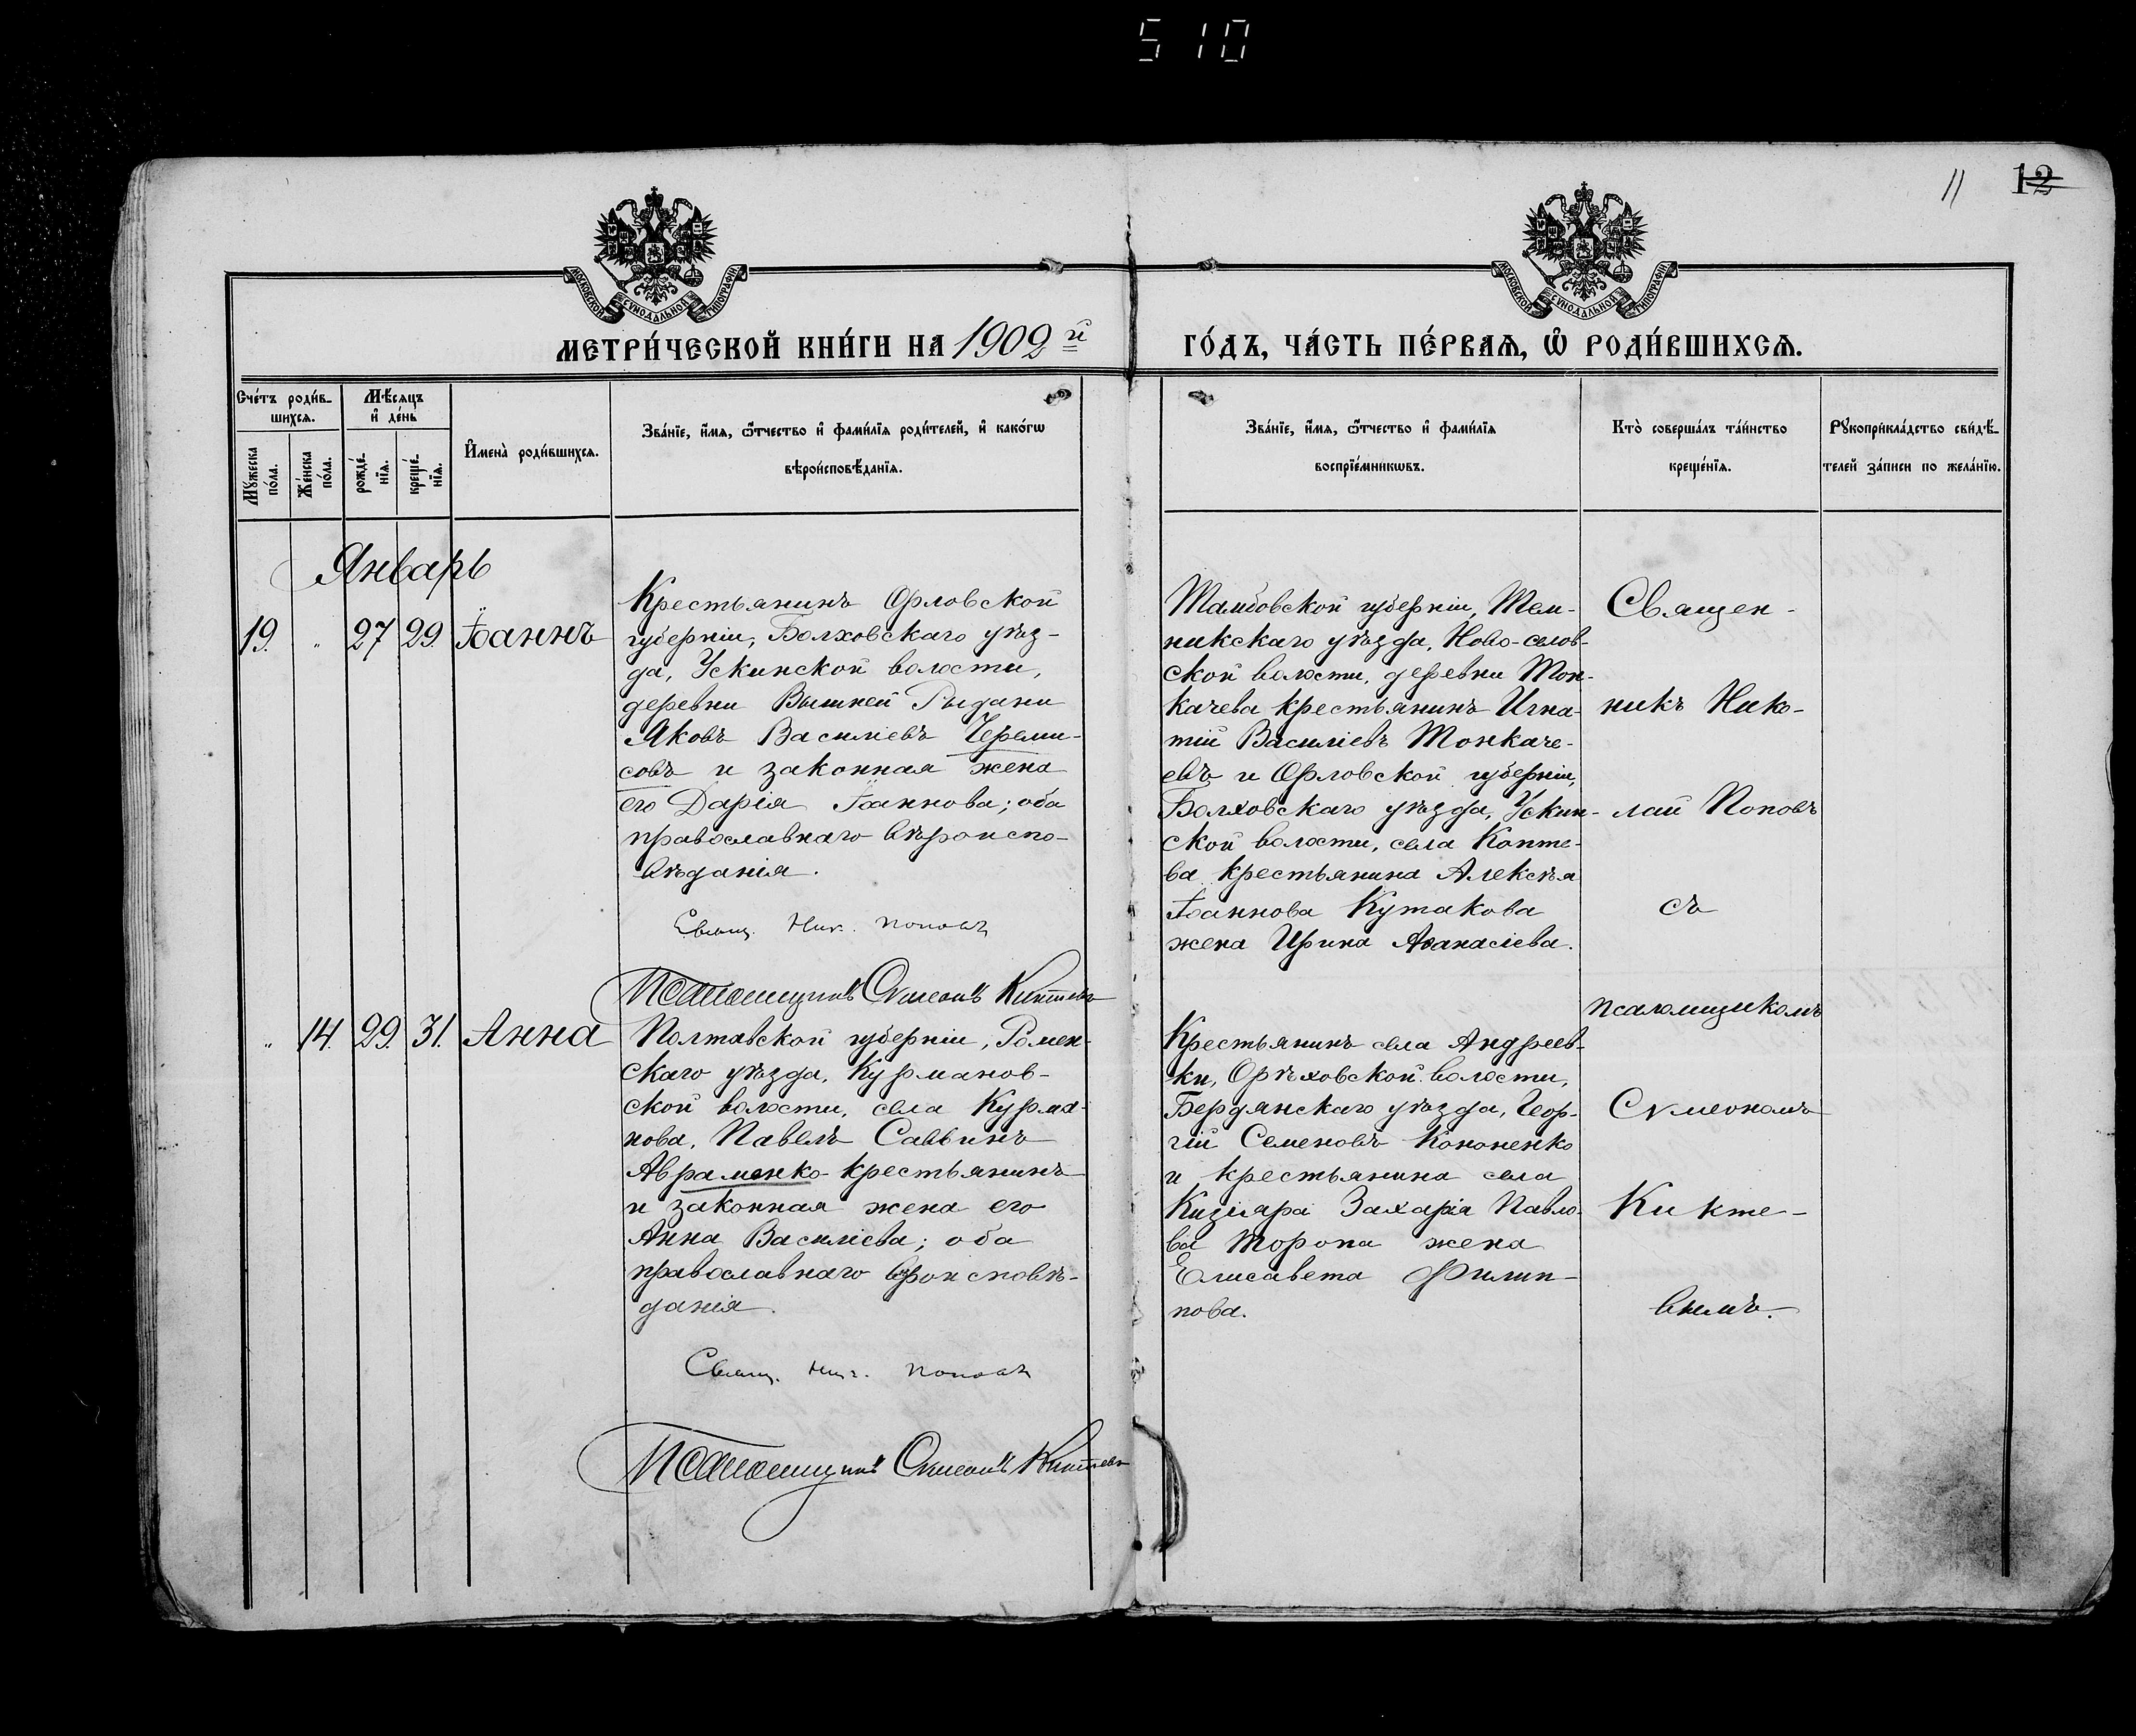 510
11 12
МОСКОВСКОЙ СѴНОДАЛЬНОЙ ТИПОГРАФІИ
МОСКОВСКОЙ СѴНОДАЛЬНОЙ ТИПОГРАФІИ
МЕТРИ́ЧЕСКОЙ КНИ́ГИ НА 1909й ГО́ДЪ, ЧА́СТЬ ПЕ́РВАѦ, Ѽ РОДИ́ВШИХСѦ.
Сче́тъ роди́в-
шихсѧ.
Мꙋ́жеска по́ла.
Же́нска по́ла.
Мѣ́сѧцъ
и҆ де́нь
рожде́-
нїѧ.
креще́-
нїѧ.
И҆мена̀ роди́вшихсѧ.
Зва́нїе, и҆́мѧ, ѻ҆́тчество и҆ фами́лїѧ роди́телей, и҆ како́гѡ
вѣроисповѣ́данїѧ.
Зва́нїе, и҆́мѧ, ѻ҆́тчество и҆ фами́лїѧ
воспрїе́мникѡвъ.
Кто̀ соверша́лъ та́инство
креще́нїѧ.
Рꙋкоприкла́дство свидѣ́-
телей за́писи по жела́нїю.
Январь
19. " 27 29. Іоаннъ
Крестьянинъ Орловской
губерніи, Болховскаго уѣз-
да, Ускинской волости,
деревни Вышней Рыдани
Яковъ Василіевъ Череми-
совъ и законная жена
его Дарія Іоаннова; оба
православнаго вѣроиспо-
вѣданія.
Свящ. Ник. Поповъ
Псаломщикъ Сѵмеонъ Киктевъ
Тамбовской губерніи, Тем-
никскаго уѣзда, Ново-селов-
ской волости, деревни Тон-
качева крестьянинъ Игна-
тій Василіевъ Тонкаче-
евъ и Орловской губерніи,
Болховскаго уѣзда, Ускин-
ской волости, села Копте-
ва крестьянина Алексѣя
Іоаннова Кутакова
жена Ирина Аѳанасіева.
Священ-
никъ Нико-
лай Поповъ
съ
псаломщикомъ
Сѵмеономъ
Кикте-
вымъ.
" 14. 29. 31. Анна
Полтавской губерніи, Ромен-
скаго уѣзда, Курманов-
ской волости, села Курма-
нова, Павелъ Саввинъ
Авраменко крестьянинъ
и законная жена его
Анна Василіева; оба
православнаго вѣроисповѣ-
данія.
Свящ. Ник. Поповъ
Псаломщикъ Сѵмеонъ Киктевъ
Крестьянинъ села Андреев-
ки, Орѣховской волости,
Бердянскаго уѣзда, Геор-
гій Семеновъ Кононенко
и крестьянина села
Кизіара Захарія Павло-
ва Торопа жена
Елисавета Филип-
пова.